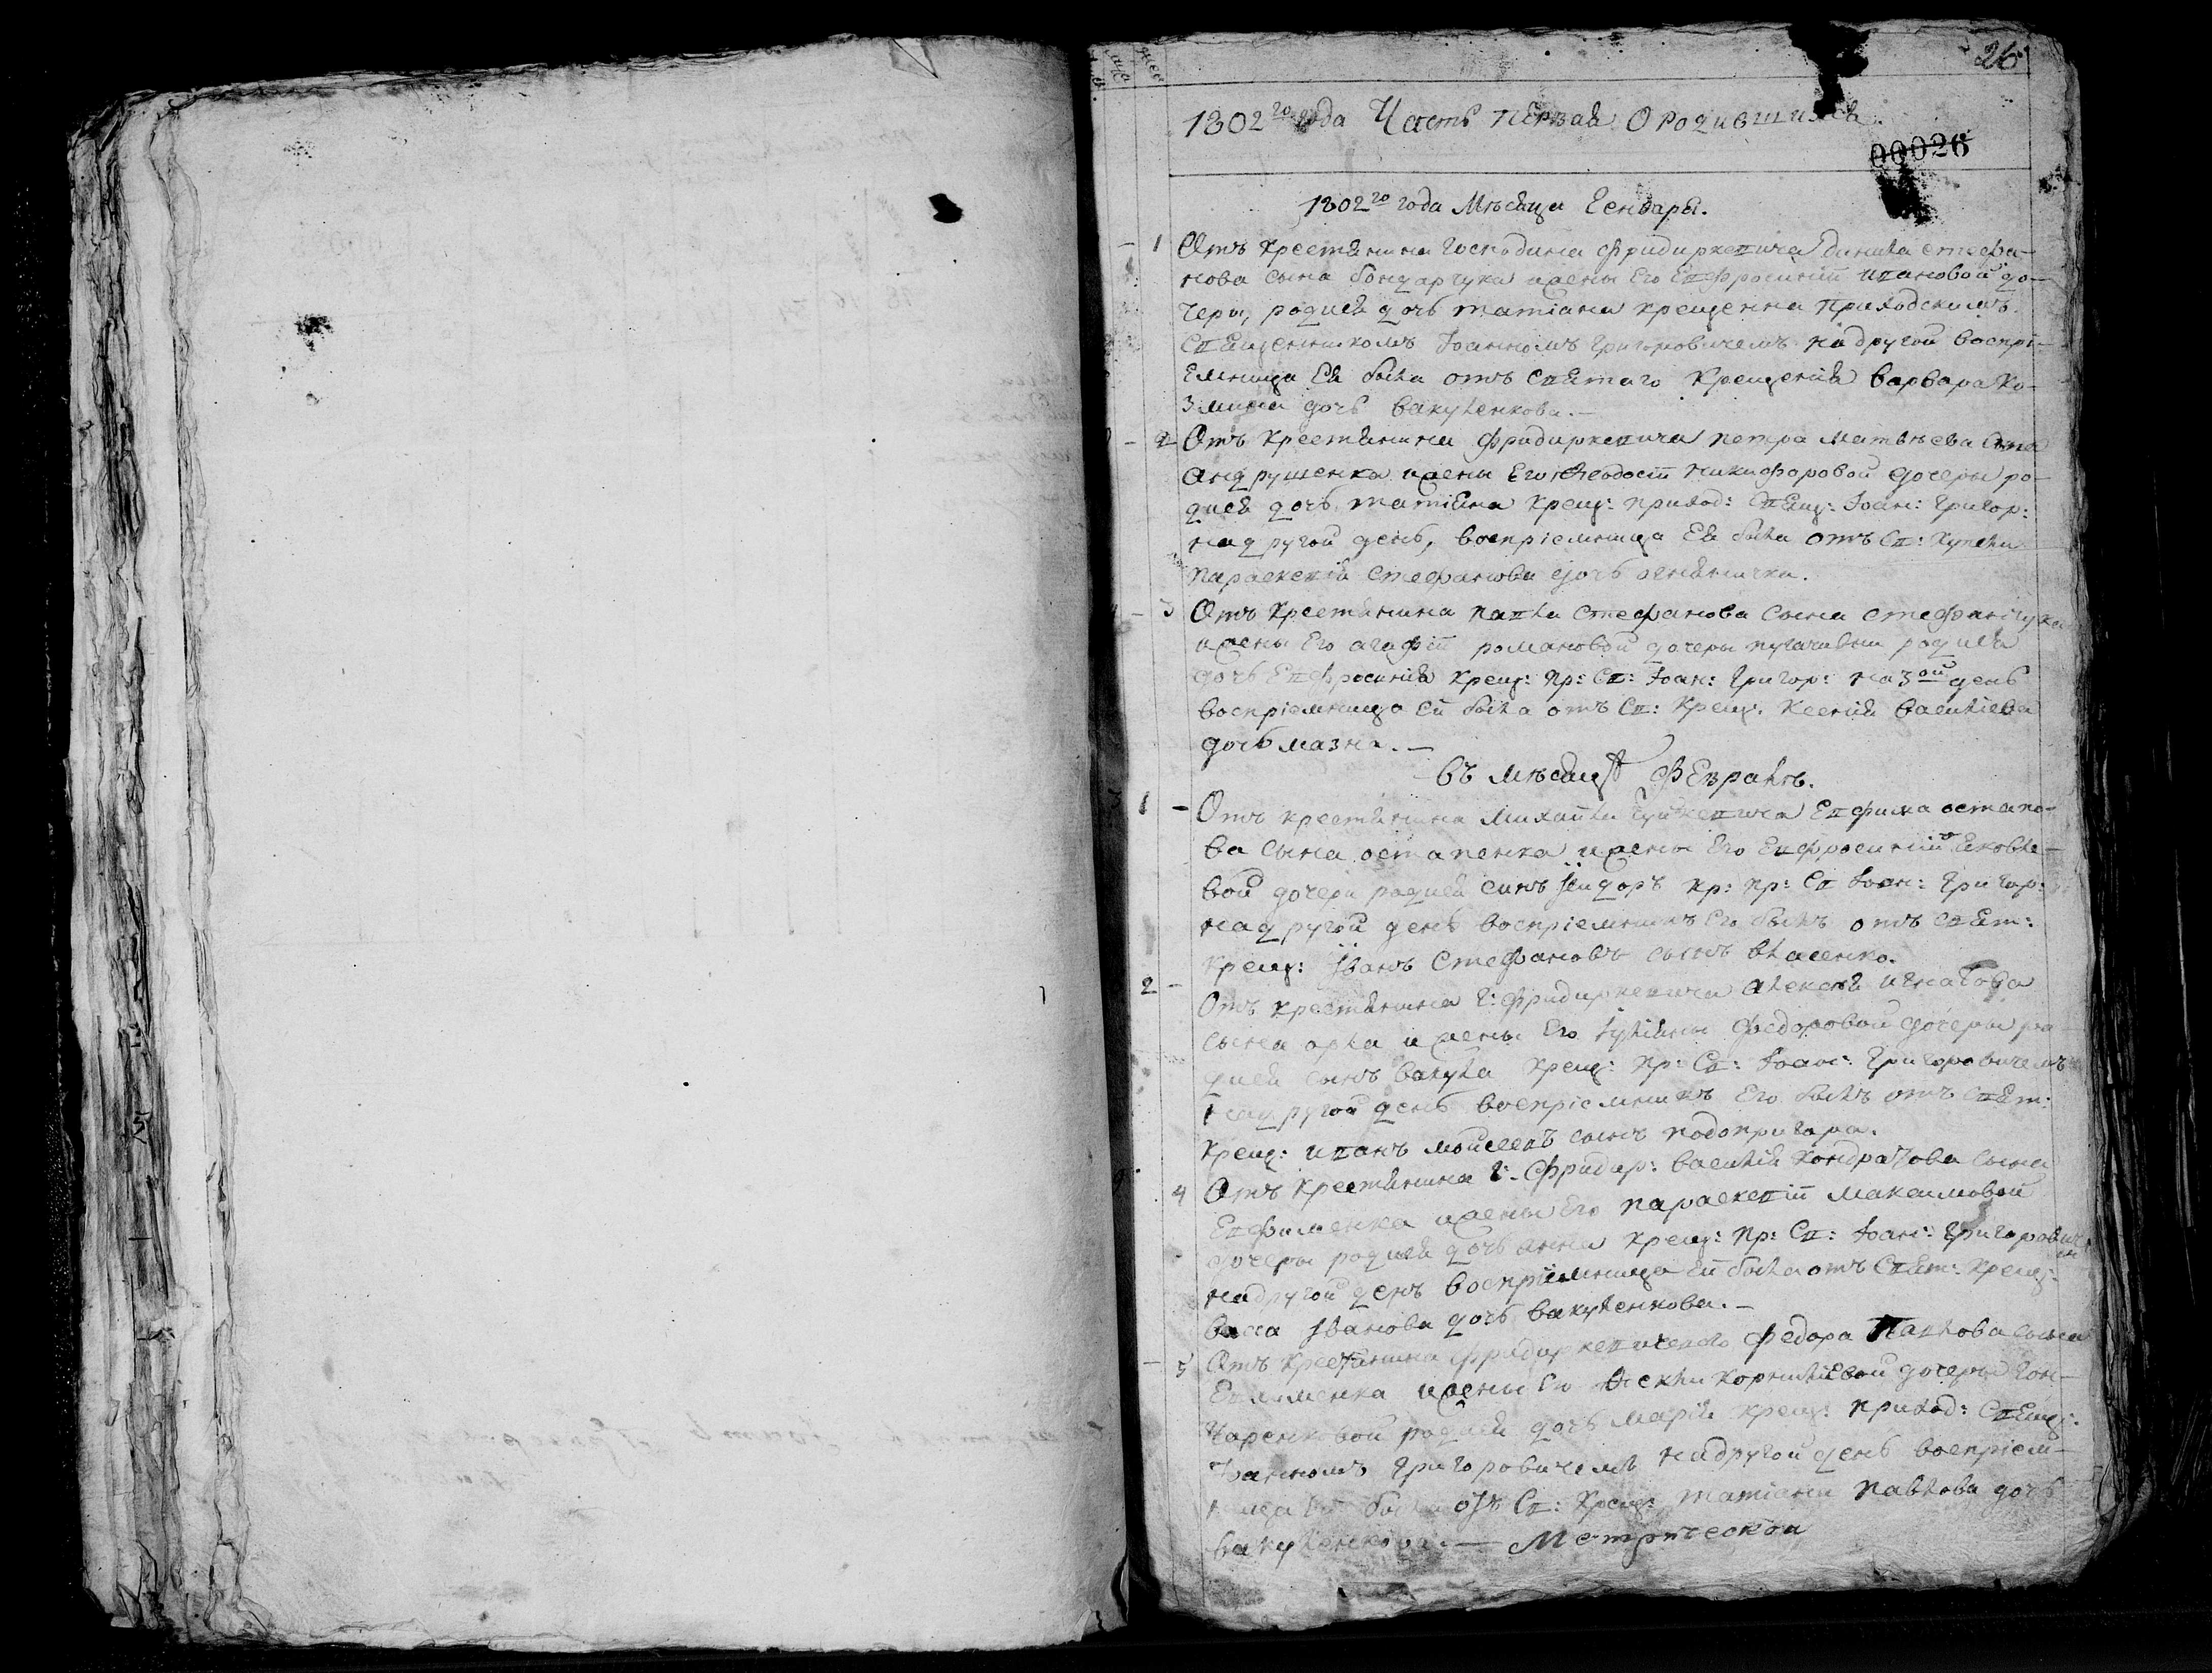 26
1802го года Часть первая О родившихся.
00026
1802го года Мѣсяца Генваря.
1 Отъ крестянина Господина Фридиркевича данила стефа-
нова сына бондарчука ижены Его Евфросиніи ивановой до-
чери, родися дочь татіана крещенна приходскимъ
Священникомъ Іоанномъ Григоровичемъ надругой воспрі-
емница Ея была отъ святаго Крещенія варвара Ко-
змина дочь вакуленкова.—
2 Отъ крестянина Фридиркевича петра матвѣева сына
андрушенка ижены Его Феодосіи никифоровой дочеры ро-
дися дочь татіяна крещ: приход: Свящ: Іоан: Григор:
надругой день, воспріемница Ея была отъ Св: купели
параскевія Стефанова дочь
3 Отъ крестянина павла Стефанова сына стефанчука
ижены Его агафіи романовой дочеры родися
дочь Евфросинія крещ: пр: Св: Іоан: Григор: на 3ой день
воспріемница Ей была отъ Св: Крещ: Ксенія василіева
дочь мазна.—
въ мѣсяцѣ Февралѣ.
1 Отъ крестянина михайла Евфима остапо-
ва сына остапенка ижены Его Евфросиніи яковле-
вой дочери родися синъ Ісидоръ кр: пр: Св Іоан: Григор:
надругой день воспріемникъ Его былъ отъ свят:
крещ: Іванъ Стефановъ сынъ власенко.
2 Отъ крестянина г: Фридиркевича алексѣя игнатова
сына орла ижены Его Іуліяны федоровой дочеры ро
дися сынъ вакула крещ: пр: Св: Іоан: Григоровичемъ
надругой день воспріемникъ Его былъ отъ свят:
крещ: иванъ мойсеевъ сынъ подопригора.
4 Отъ крестянина г: Фридир: василія кондратова сына
Евфименка ижены Его параскевіи максимовой
дочеры родися дочь анна крещ: пр: Св: Іоан: Григорович
надругой день воспріемница Ей была отъ Свят: крещ:
васса Іванова дочь вакуленкова.—
5 Отъ крестянина фридиркевичевого федора Павлова сына
ижены Его Феклы корниліевой дочеры гон-
чаренковой родися дочь марія крещ: приход: Свящ:
Іоанномъ Григоровичемъ надругой день воспріем-
ница Ей была отъ Св: Крещ: татіана павлова дочь
вакуленкова.— Метрической